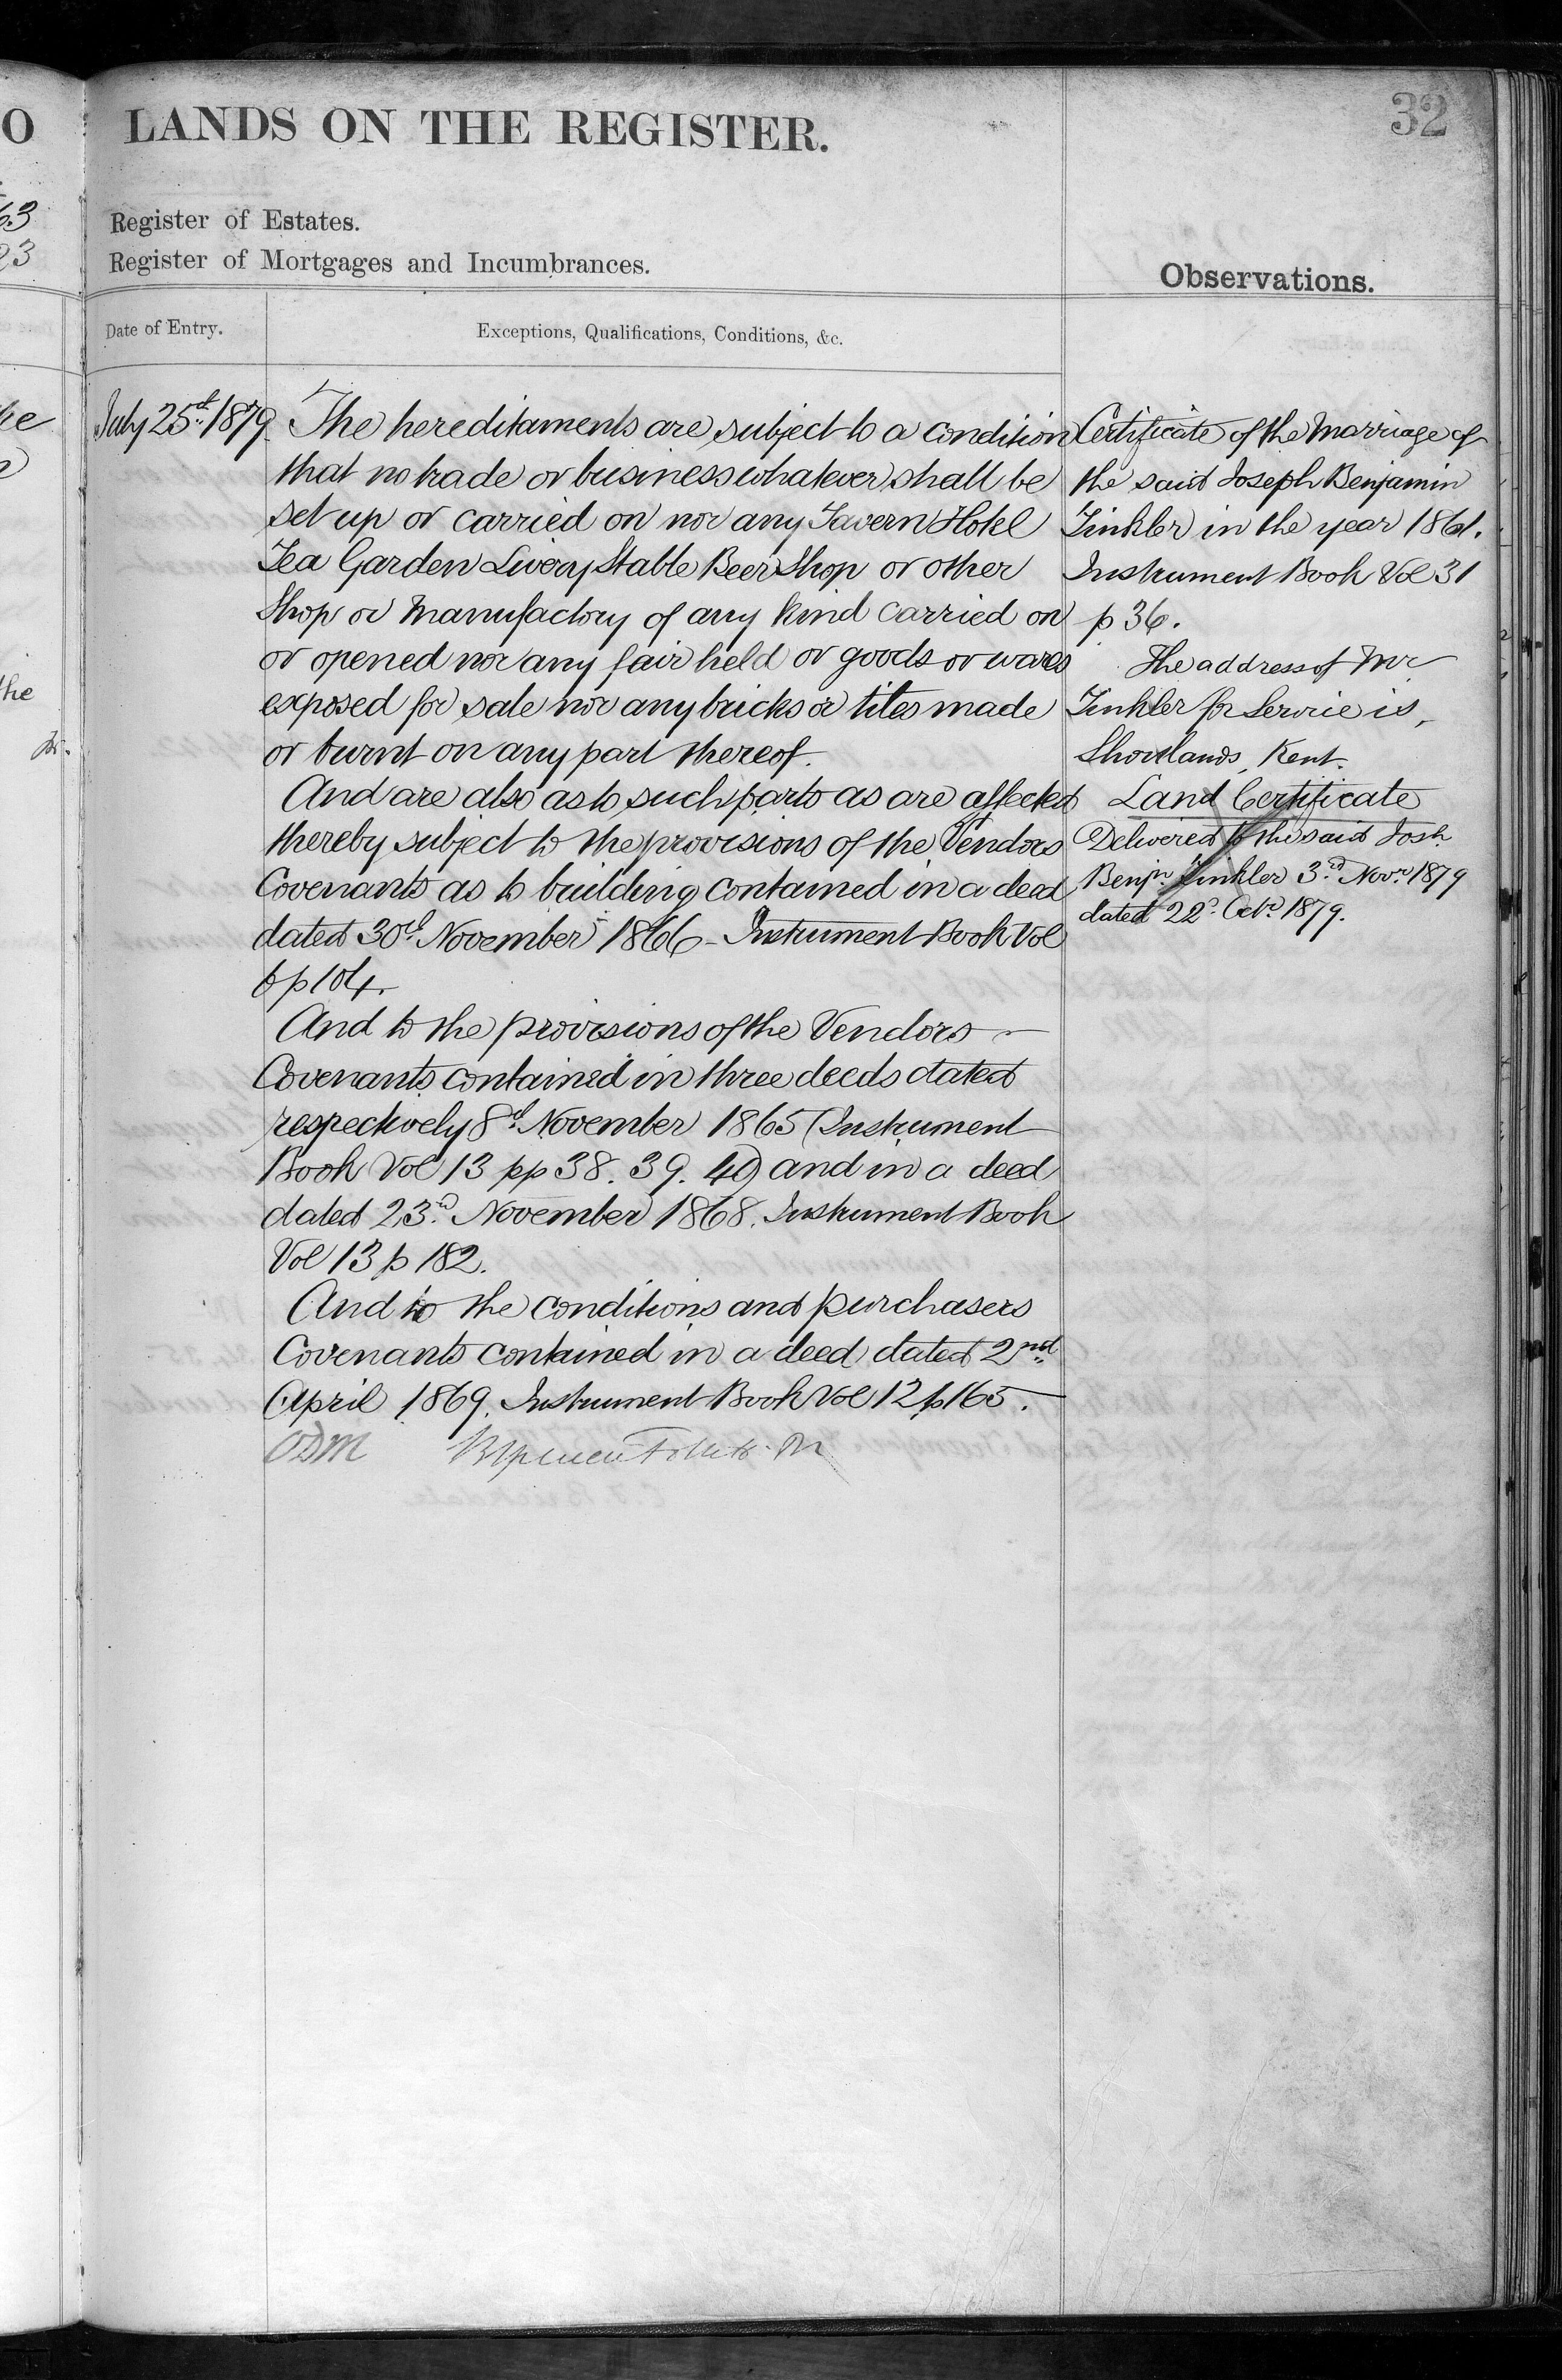 LANDS ON THE REGISTER.
32
Register of Estates.
Register of Mortgages and Incumbrances.
Observations.
Date of Entry.
Exceptions, Qualifications, Conditions, &c.
July 25th 1879
The hereditaments are subject to a condition
that no trade or business whatever shall be
set up or carried on nor any Tavern Hotel
Tea Garden Livery Stable Beer Shop or other
Shop or Manufactory of any kind carried on
or opened nor any fair held or goods or wares
exposed for sale nor any bricks or tiles made
or burnt on any part thereof.
And are also as to such parts as are affected
thereby subject to the provisions of the Vendors
Covenants as to building contained in a deed
dated 30th November 1866 - Instrument Book Vol
6 p 104.
And to the provisions of the Vendors
Covenants contained in three deeds dated
respectively 8th November 1865 (Instrument
Book Vol 13 pp 38. 39. 40) and in a deed
dated 23rd November 1868. Instrument Book
Vol 13 p 182.
And to the conditions and purchasers
Covenants contained in a deed dated 2nd
April 1869. Instrument Book Vol 12 p 165.
Certificate of the Marriage of
the said Joseph Benjamin
Tinkler in the year 1861.
Instrument Book Vol 31
p 36.
The address of Mr
Tinkler for Service is,
Kent.
Land Certificate
Delivered to the said Josh
Benjn Tinkler 3rd Novr 1879
dated 22d Octr 1879.